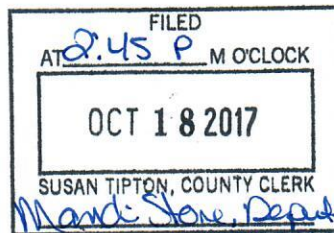 FILED
AT 2:45 P M O'CLOCK
OCT 18 2017
SUSAN TIPTON, COUNTY CLERK
Mandi Stone, Deput